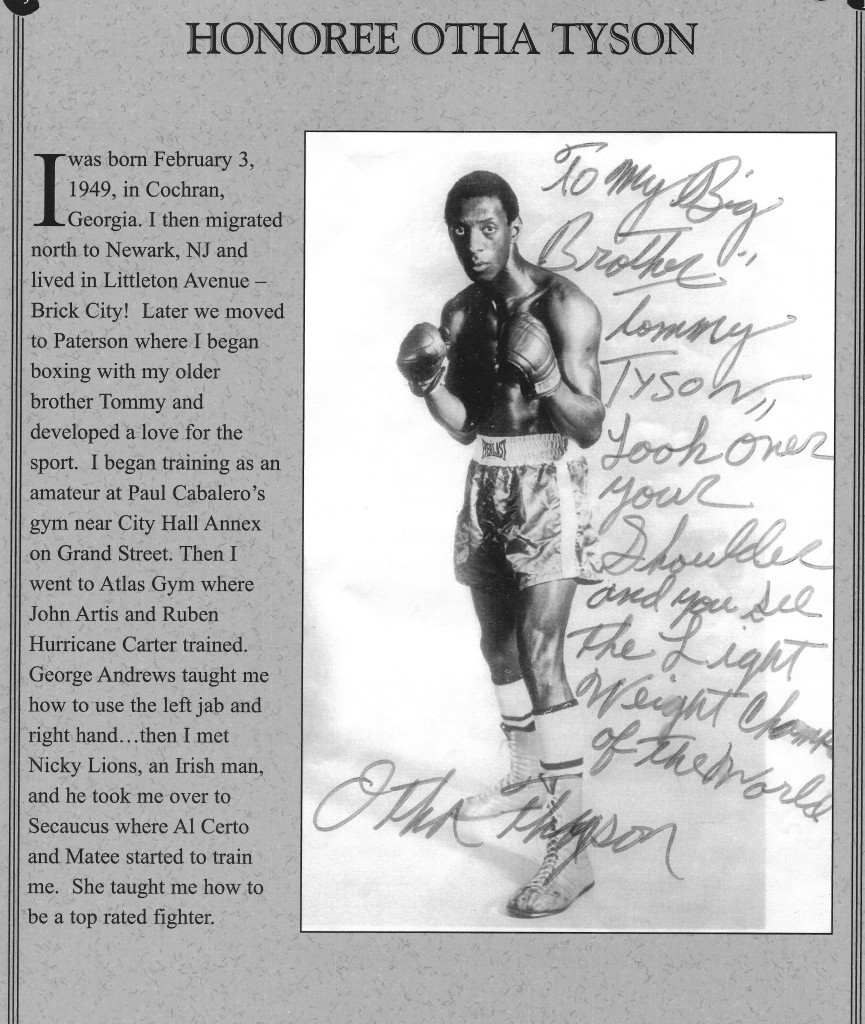 HONOREE OTHA TYSON
I was born February 3,
1949, in Cochran,
Georgia. I then migrated
north to Newark, NJ and
lived in Littleton Avenue –
Brick City!  Later we moved
to Paterson where I began
boxing with my older
brother Tommy and
developed a love for the
sport.  I began training as an
amateur at Paul Cabalero's
gym near City Hall Annex
on Grand Street. Then I
went to Atlas Gym where
John Artis and Ruben
Hurricane Carter trained.
George Andrews taught me
how to use the left jab and
right hand…then I met
Nicky Lions, an Irish man,
and he took me over to
Secaucus where Al Certo
and Matee started to train
me.  She taught me how to
be a top rated fighter.
To My Big
Brother"
Tommy
TYSON"
Look over
your
Shoulder
and you see
The Light
Weight Champ
of the World
Otha Tyson
EVERLAST